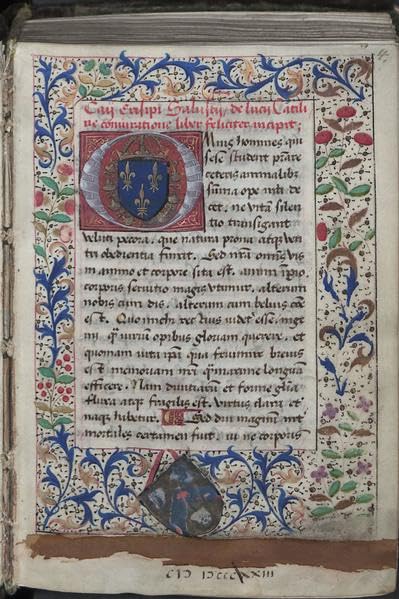 Caij Crispi Salustij de lucij Catili
ne coniuratione liber feliciter incipit;
Mnis homines qui
sese student prestare
ceteris animalibz
suma ope niti de
cet, ne vita silen
tio transigant
veluti pecora, que natura prona atqz ven
tri obedientia finxit. Sed nra omnis vis
in animo et corpore sita est. animi impio
corporis seruitio magis vtimur, alterum
nobis cum dis, alterum cum beluis comune
est. Quo michi rectius videtr esse, inge
nij qm virium opibus gloriam querere, et
quoniam vita ipa qua fruimur breuis
est memoriam nri qmaxime longam
efficere. Nam diuitiarum et forme gla
fluxa atqz fragilis est, virtus clara et
naqz habetur. Sed diu magnum inter
mortales certamen fuit, vi ne corporis